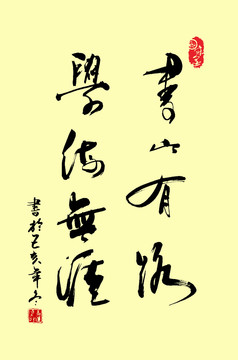 書山有路
學海無涯
書於己亥年冬